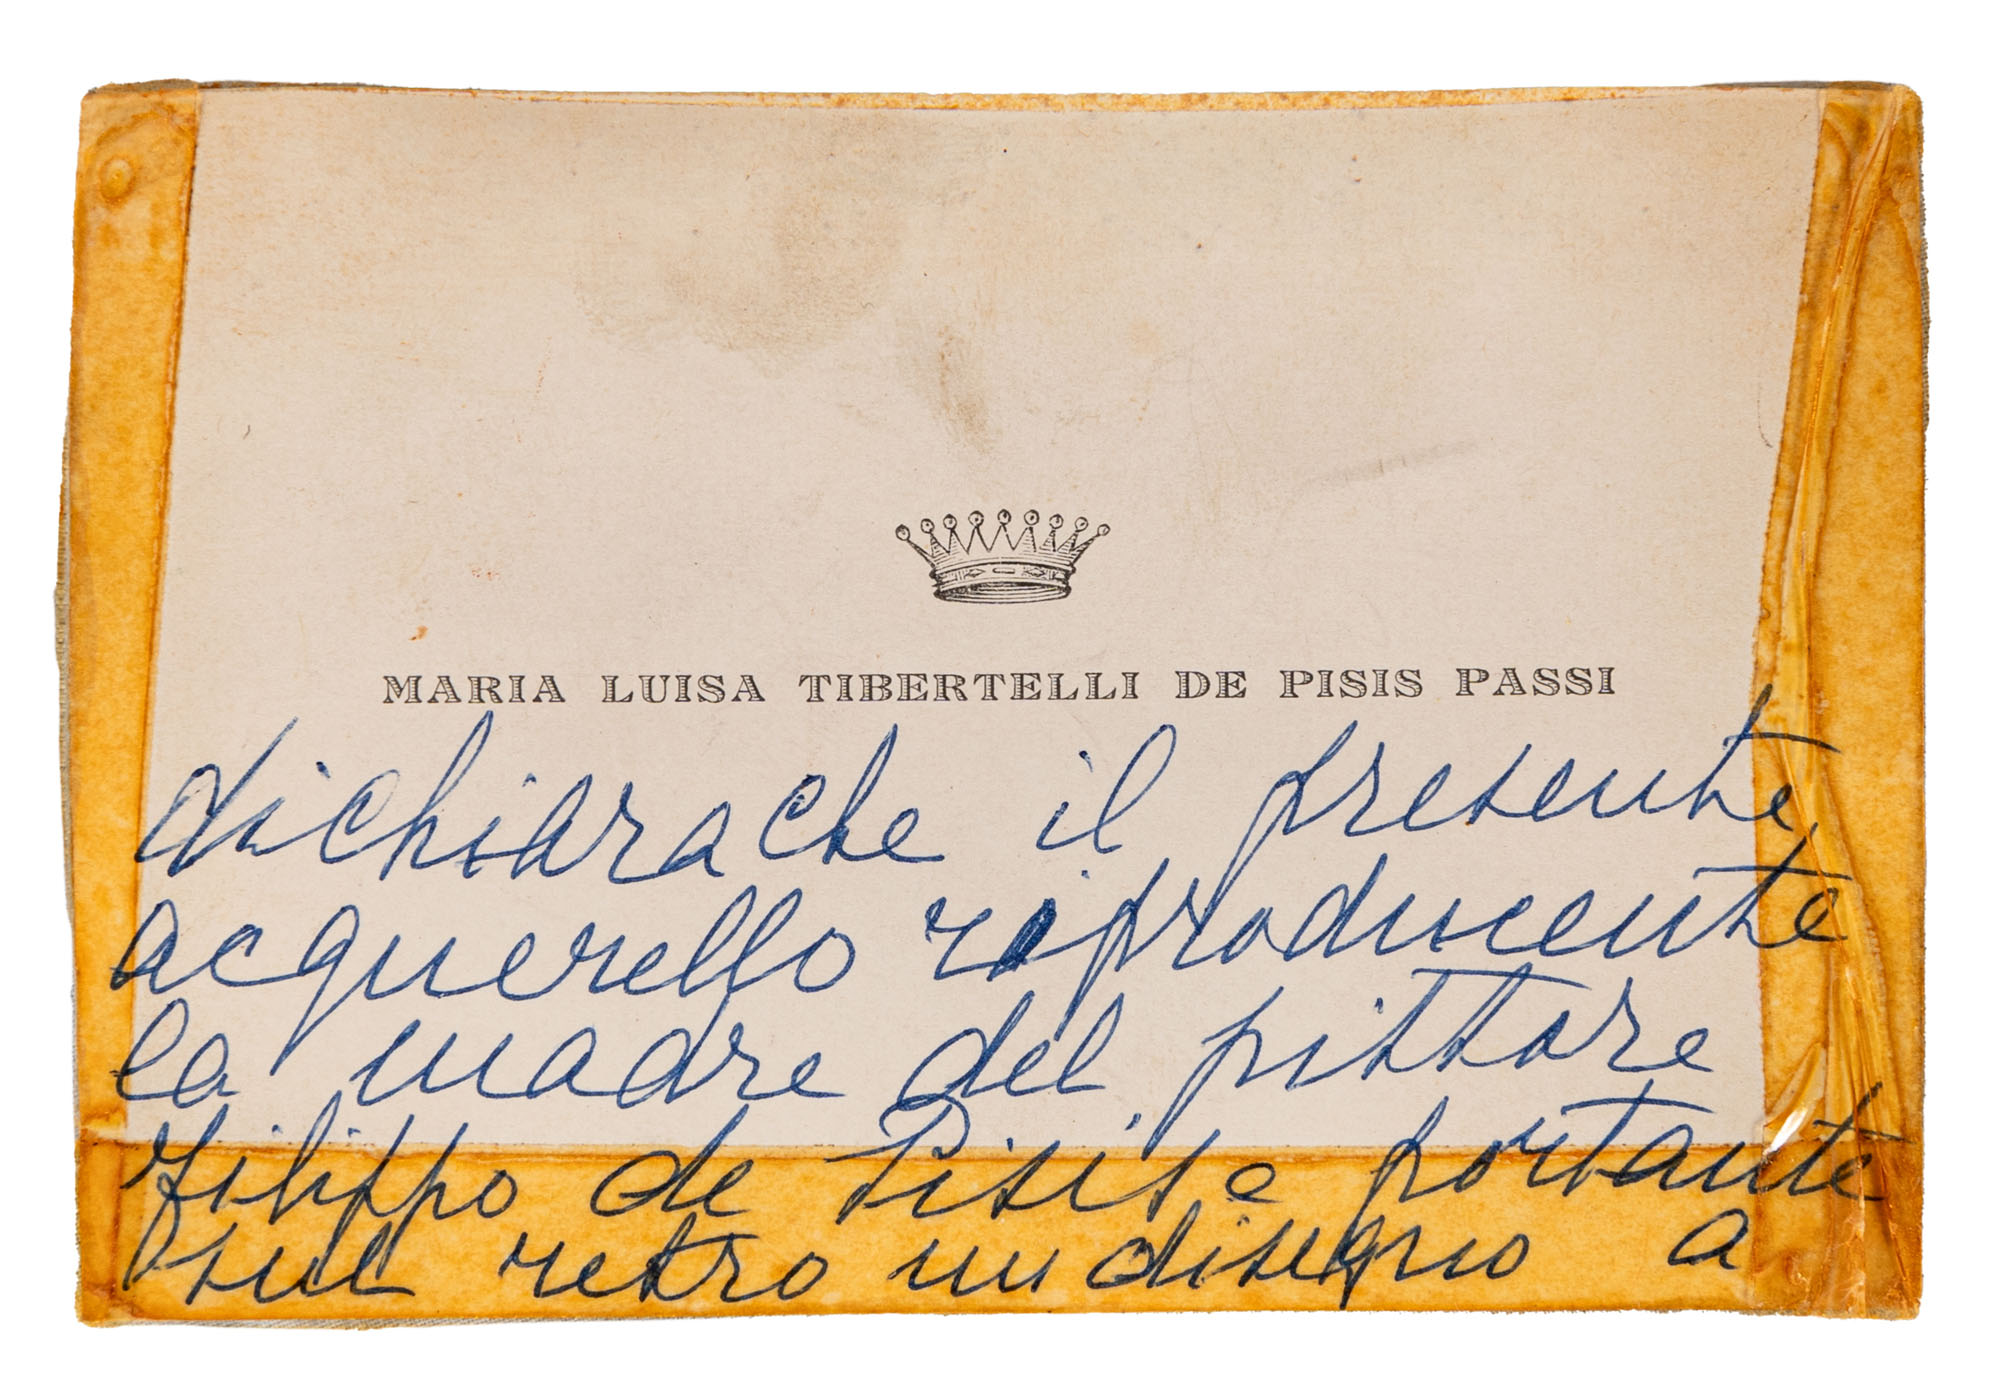 MARIA LUISA TIBERTELLI DE PISIS PASSI
dichiara che il presente
acquerello riproducente
la madre del pittore
Filippo de Pisis e portante
sul retro un disegno a